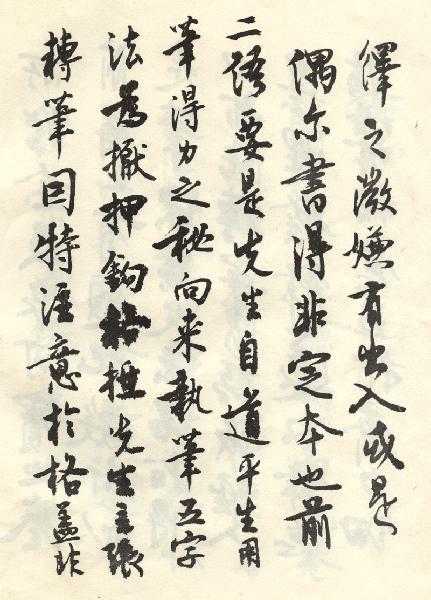 繹之微嫌有出入或是
偶尔書得非定本也前
二語要是先生自道平生用
筆得力之秘向来執筆五字
法為擫押鉤格抵先生主張
轉筆因特注意於格蓋非